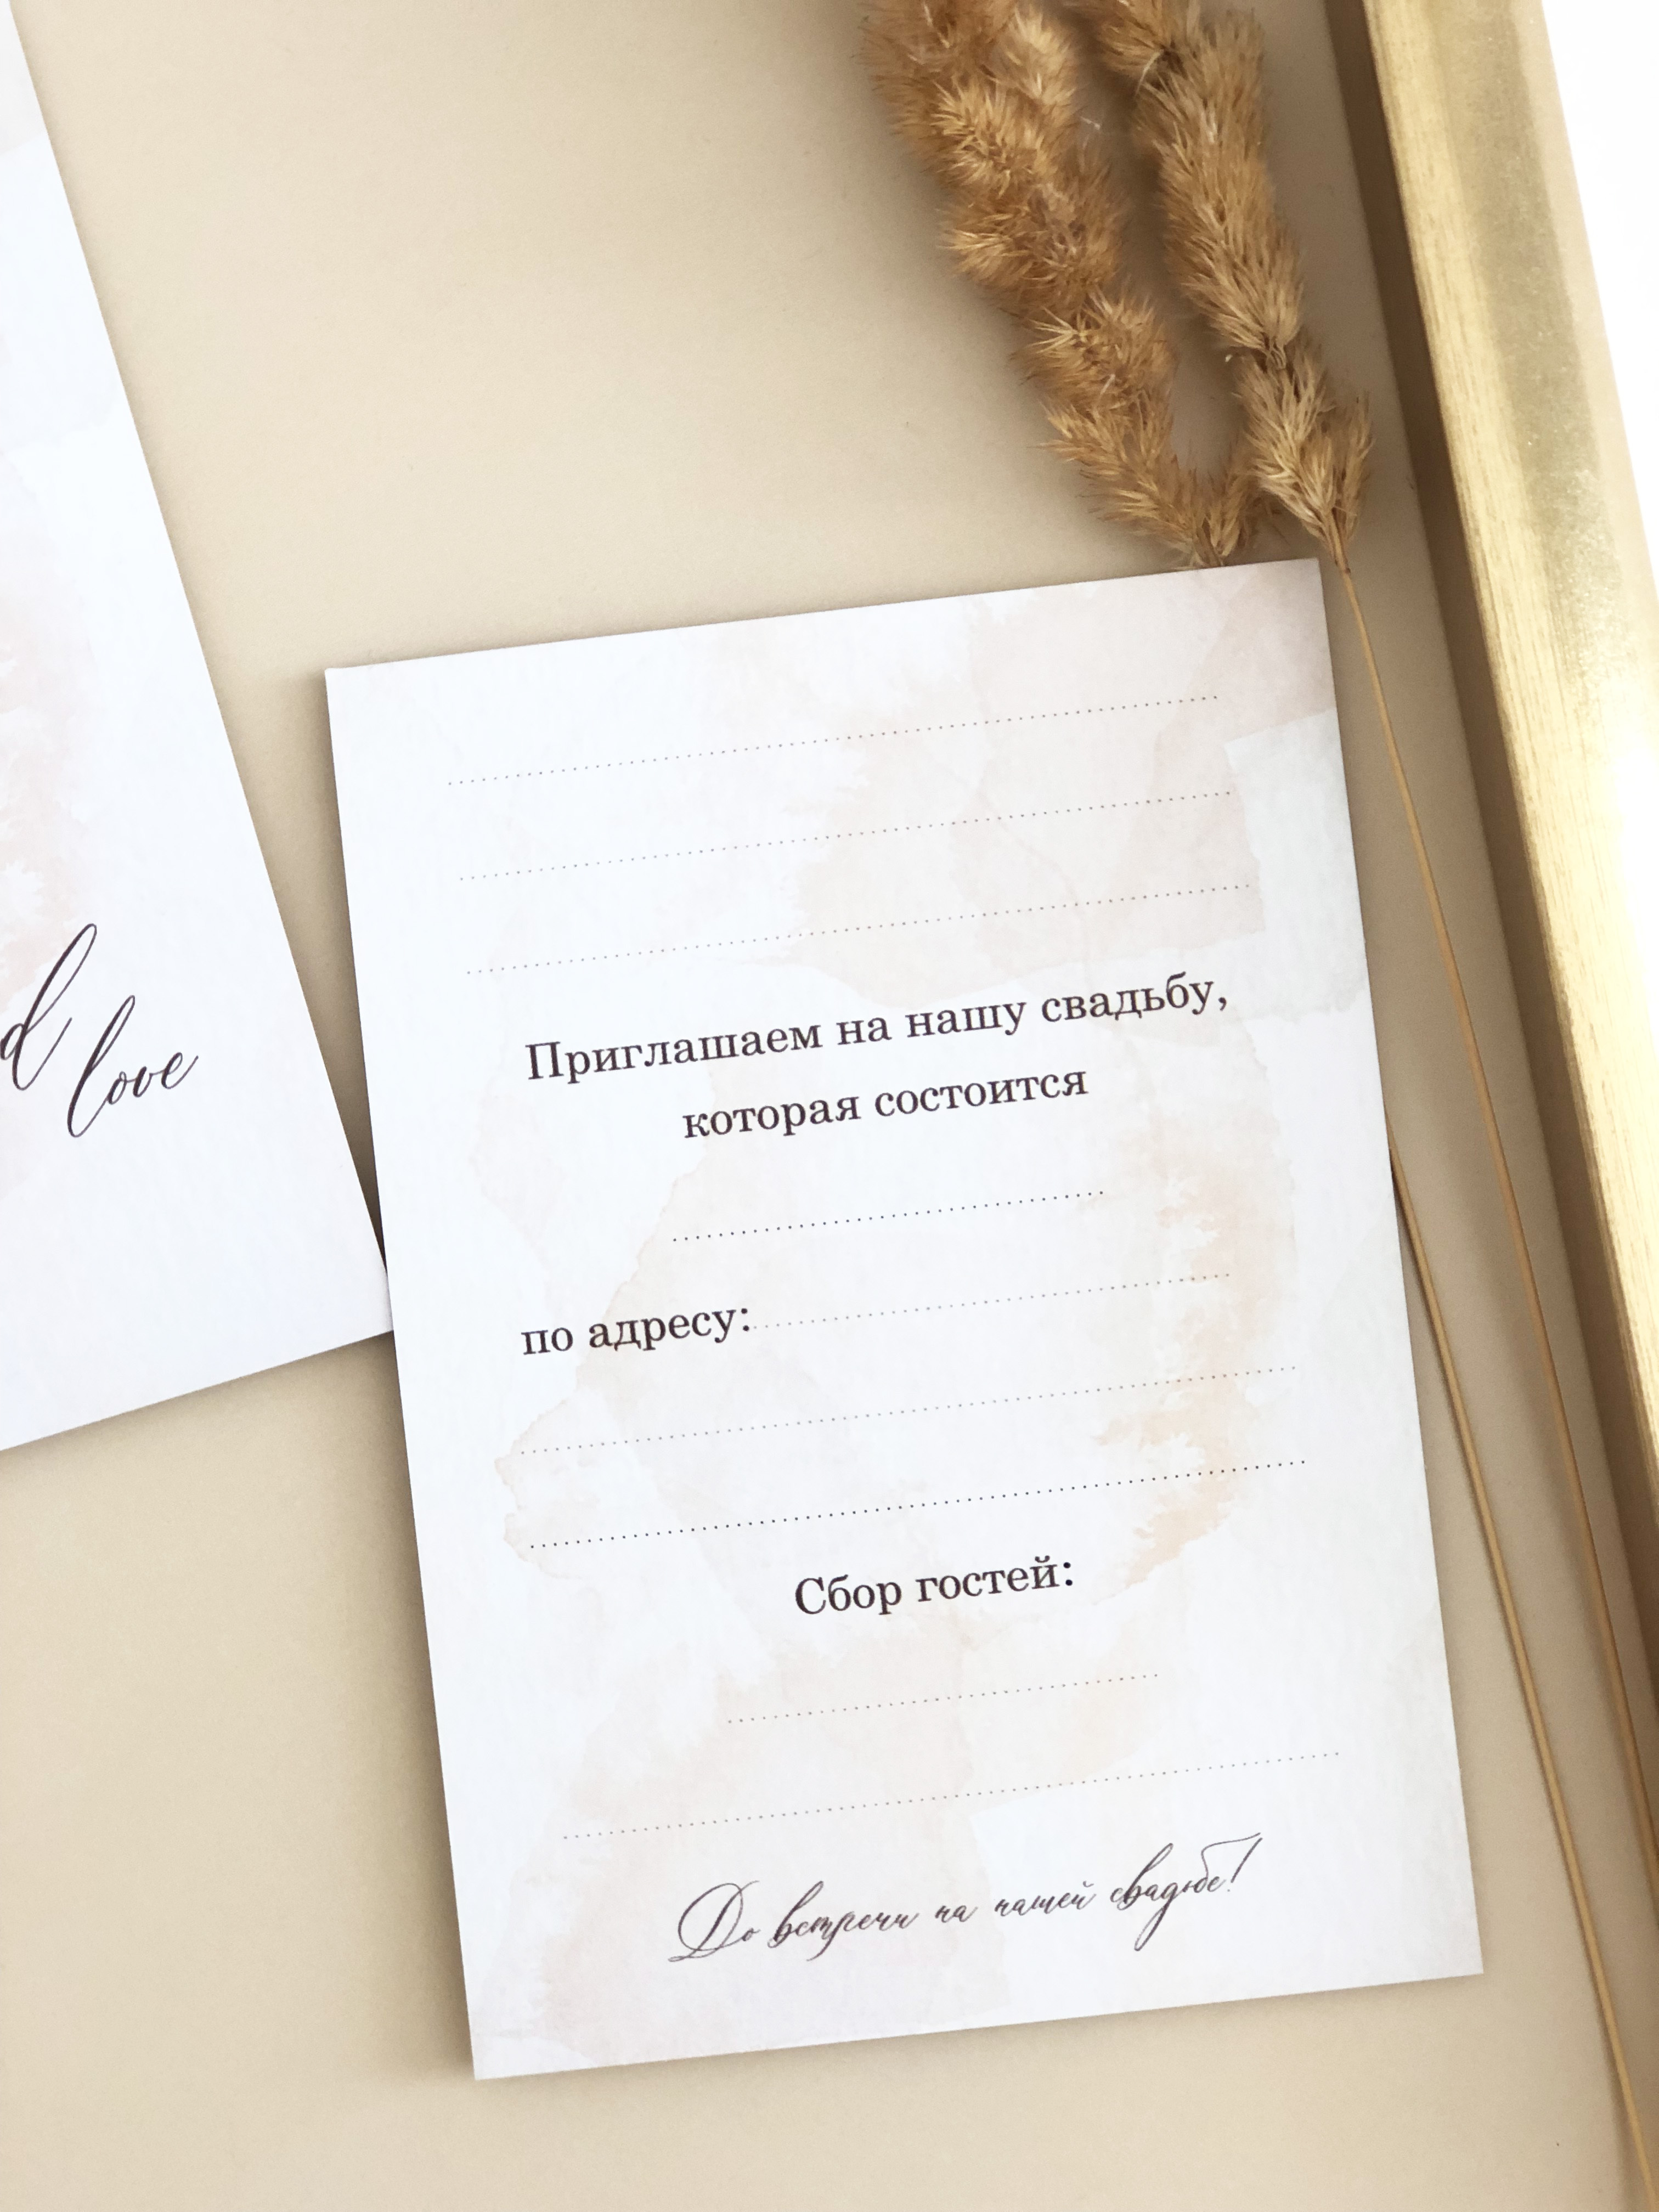 d
love
Приглашаем на нашу свадьбу,
которая состоится
по адресу:
Сбор гостей:
До встречи на нашей свадьбе!